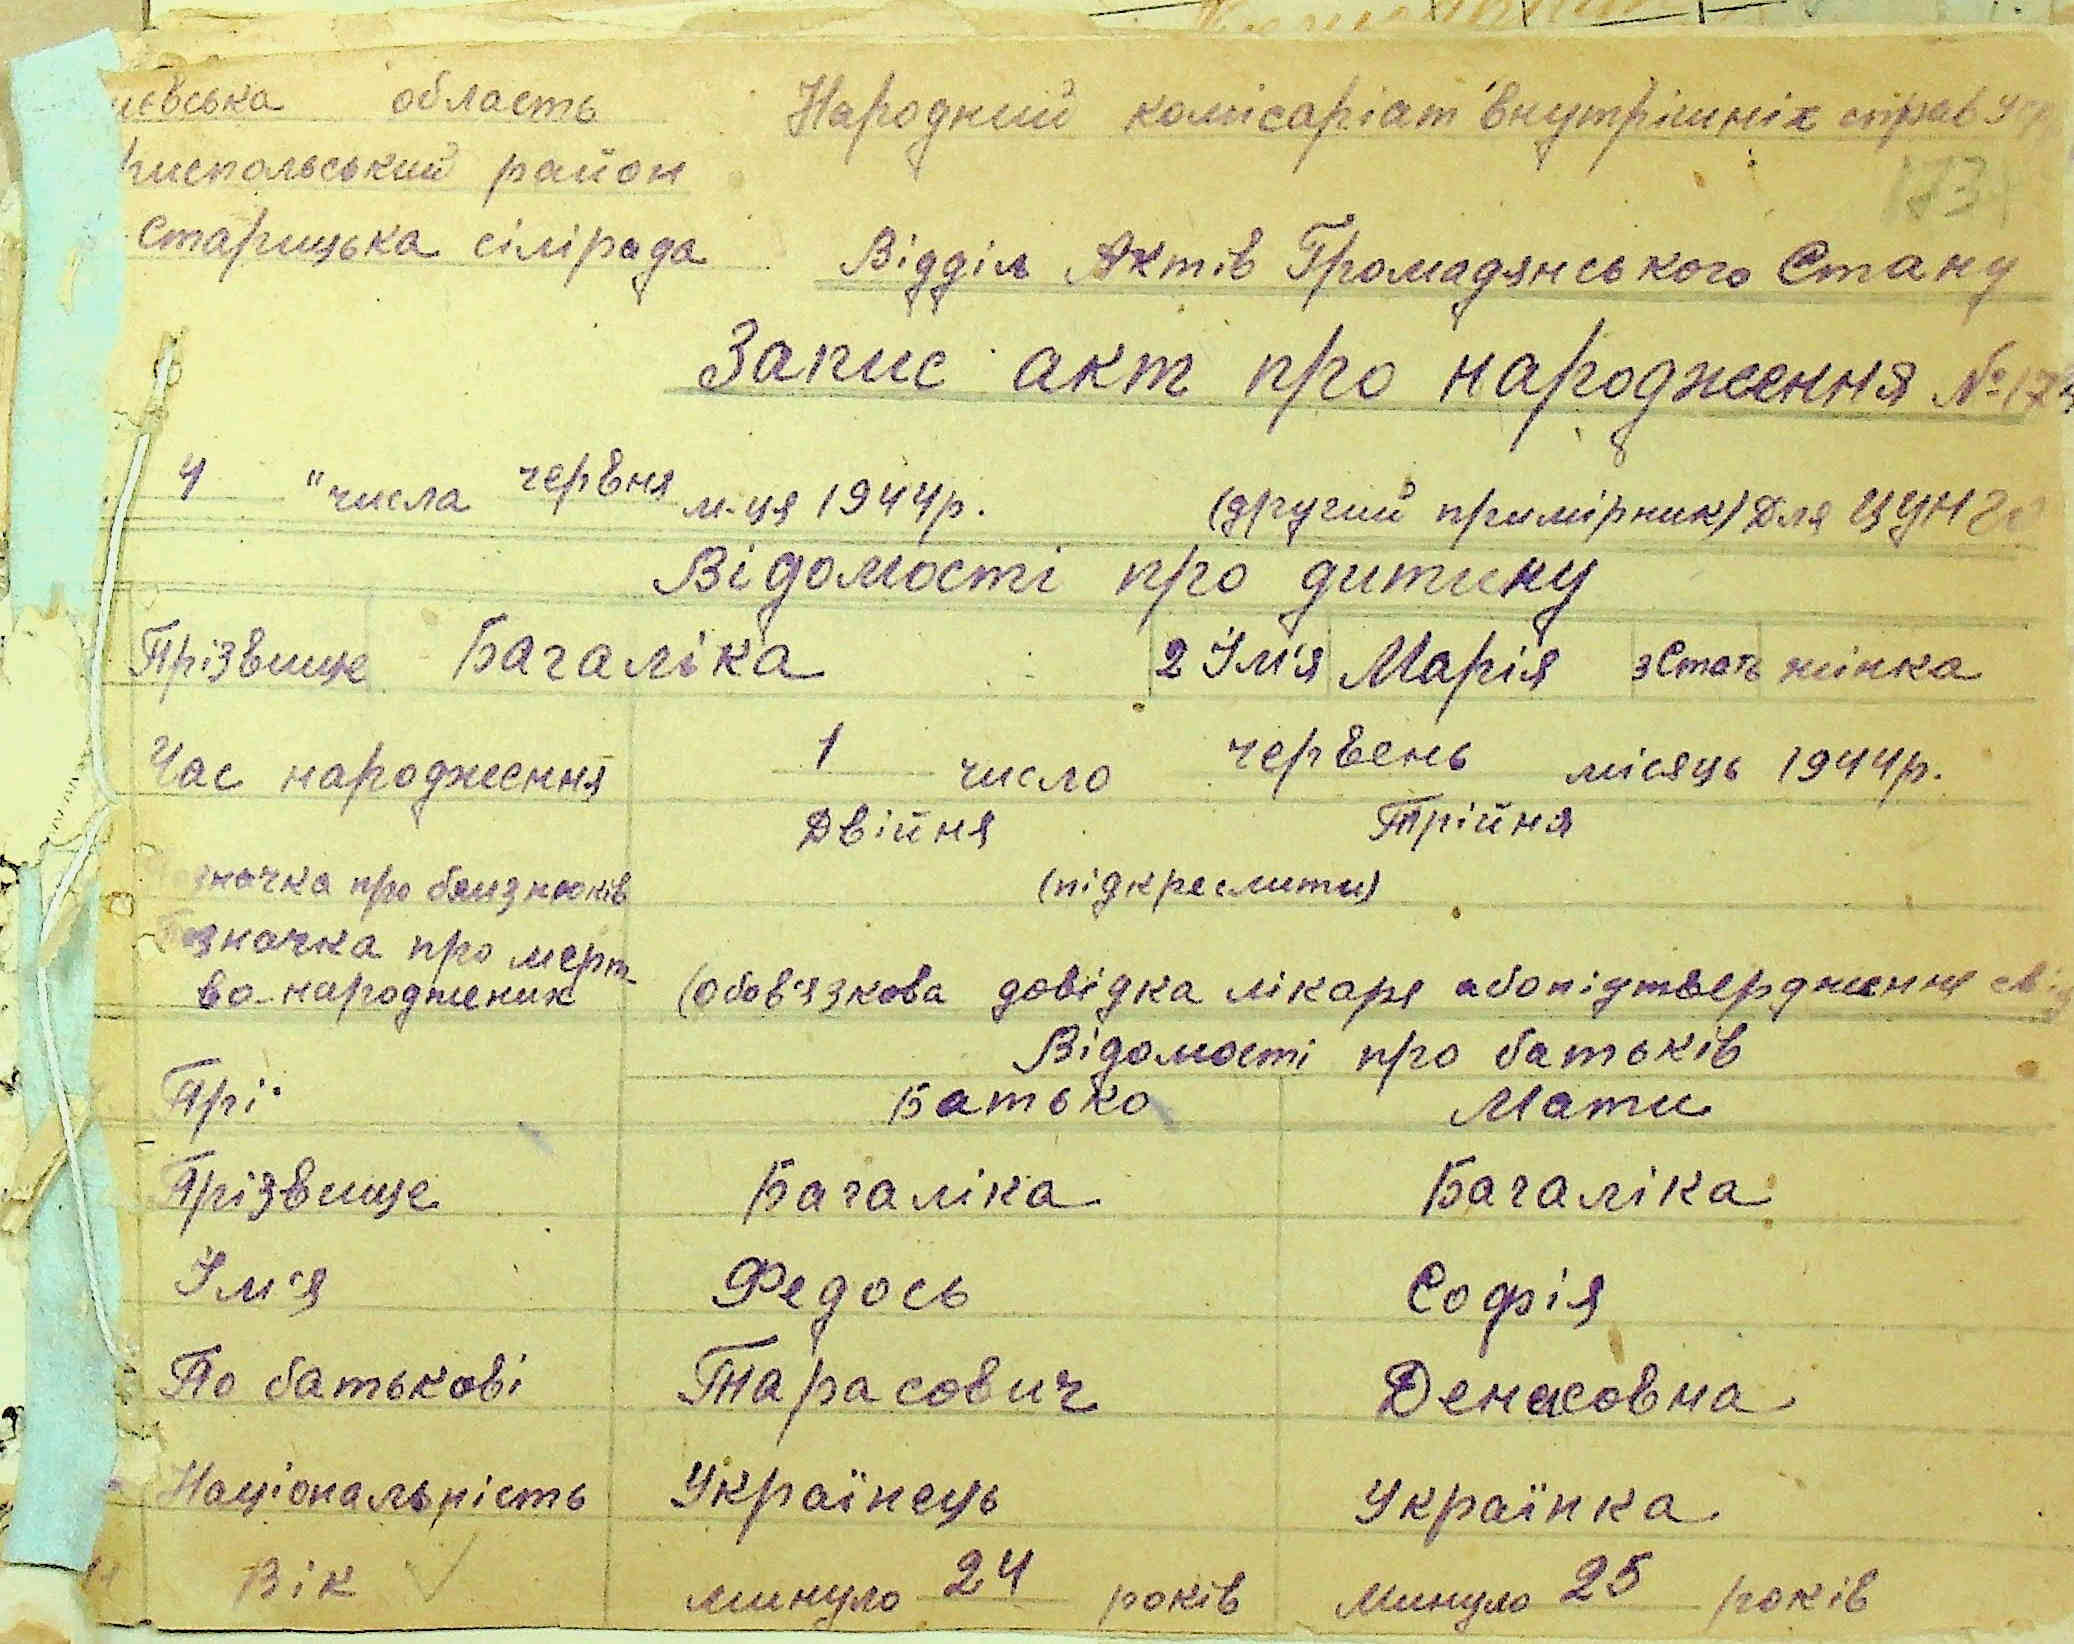 область Народний комісаріат внутрішніх справ
район
Старицька сілірада Відділ Актів Громадянського Стану
173
Запис акт про народження №
4 " числа червня м-ця 1944р. (другий примірник) Для ЦУНГО
Відомості про дитину
Прізвище Багаліка 2 Ім'я Марія 3 Стать жінка
Час народження 1 число червень місяць 1944р.
Двійня Трійня
про близнюків (підкреслити)
про мерт-
во-народжених (обов'язкова довідка лікаря або підтвердження
Відомості про батьків
Прі Батько Мати
Прізвище Багаліка Багаліка
Ім'я Федось Софія
По батькові Тарасович
Національність Українець Українка
11 Вік минуло 24 років минуло 25 років